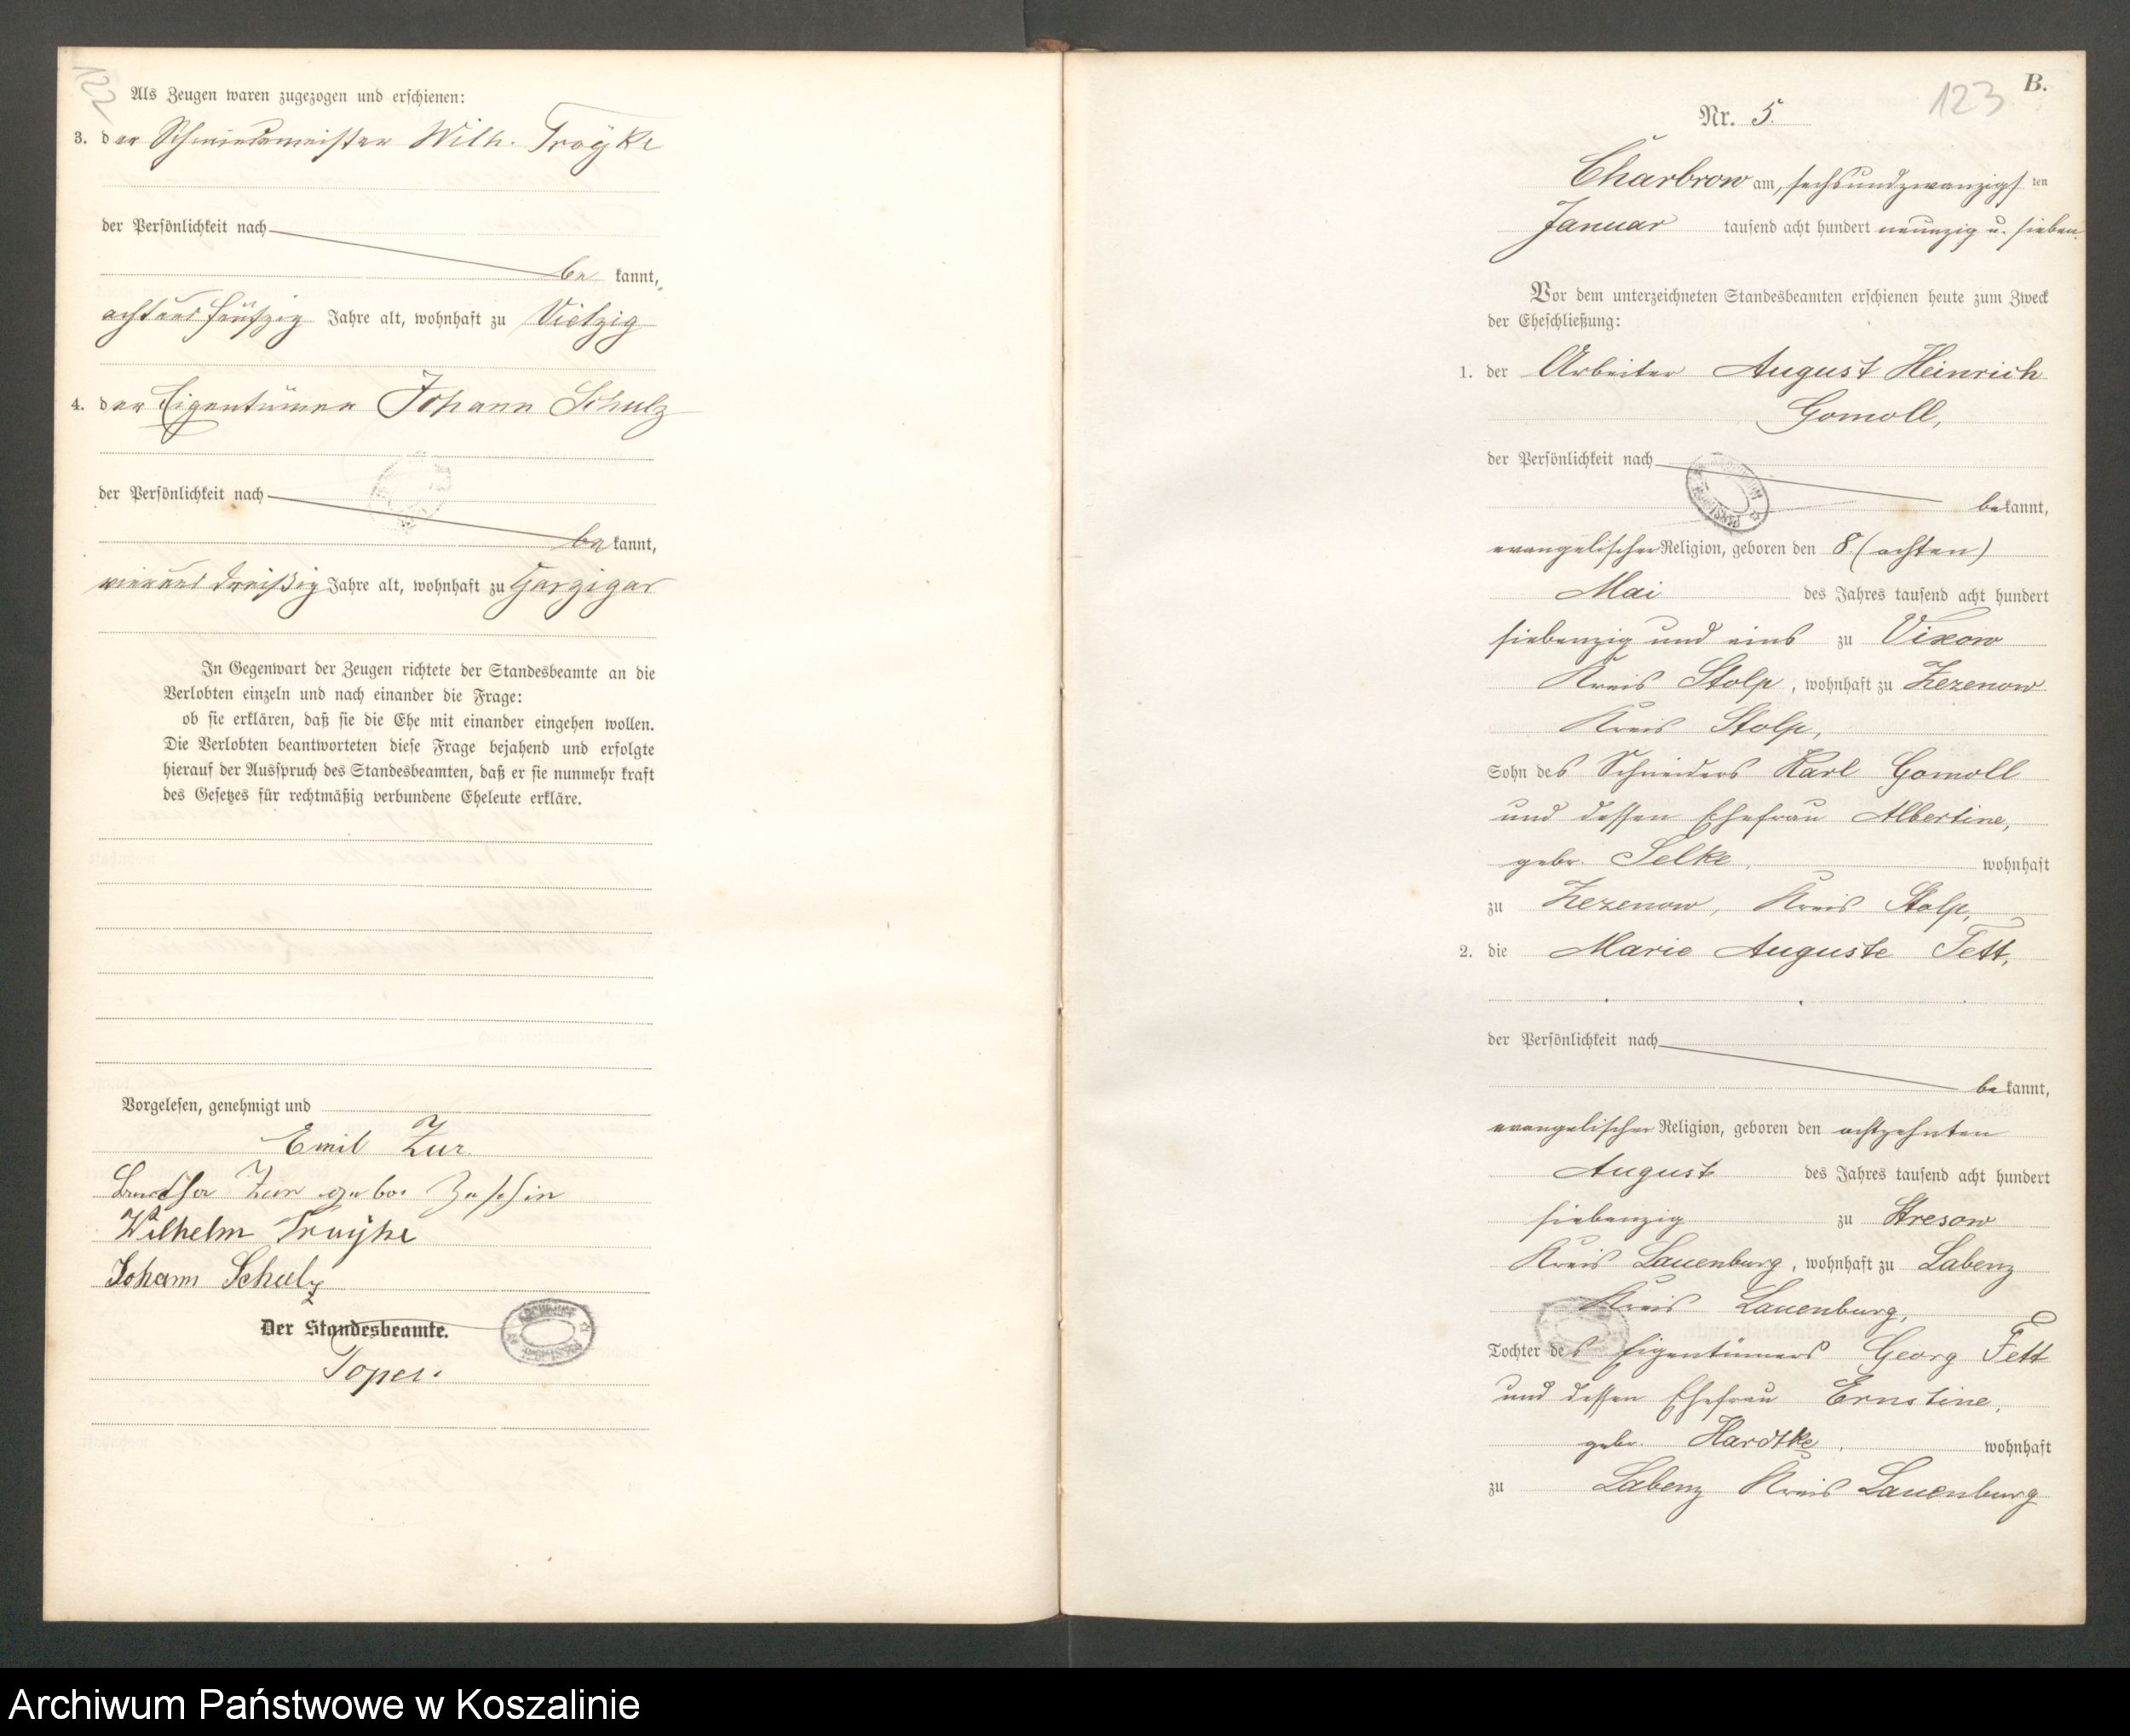 122
Als Zeugen waren zugezogen und erschienen:
3. der Schmiedemeister Wilh. Troÿke
der Persönlichkeit nach
be kannt,
achtundfünfzig Jahre alt, wohnhaft zu Vietzig
4. der Eigentümer Johann Schulz
der Persönlichkeit nach
be kannt,
vierunddreißig Jahre alt, wohnhaft zu Garzigar
In Gegenwart der Zeugen richtete der Standesbeamte an die
Verlobten einzeln und nach einander die Frage:
ob sie erklären, daß sie die Ehe mit einander eingehen wollen.
Die Verlobten beantworteten diese Frage bejahend und erfolgte
hierauf der Ausspruch des Standesbeamten, daß er sie nunmehr kraft
des Gesetzes für rechtmäßig verbundene Eheleute erkläre.
Vorgelesen, genehmigt und
Emil Zur
Zur gebor
Wilhelm Troÿke
Johann Schulz
Der Standesbeamte.
Toper.
B.
123
Nr. 5.
Charbrow am, sechsundzwanzigs ten
Januar tausend acht hundert neunzig u. sieben.
Vor dem unterzeichneten Standesbeamten erschienen heute zum Zweck
der Eheschließung:
1. der Arbeiter August Heinrich
Gomoll,
der Persönlichkeit nach
be kannt,
evangelischer Religion, geboren den 8. (achten)
Mai des Jahres tausend acht hundert
siebenzig und eins zu Vixow
Kreis Stolp, wohnhaft zu Zezenow
Kreis Stolp,
Sohn des Schneiders Karl Gomoll
und dessen Ehefrau Albertine,
gebr. Selke, wohnhaft
zu Zezenow, Kreis Stolp,
2. die Marie Auguste Fett,
der Persönlichkeit nach
be kannt,
evangelischer Religion, geboren den achtzehnten
August des Jahres tausend acht hundert
siebenzig zu Stresow
Kreis Lauenburg, wohnhaft zu Labenz
Kreis Lauenburg,
Tochter des Eigentümers Georg Fett
und dessen Ehefrau Ernstine,
gebr. Hardtke, wohnhaft
zu Labenz Kreis Lauenburg
Archiwum Państwowe w Koszalinie